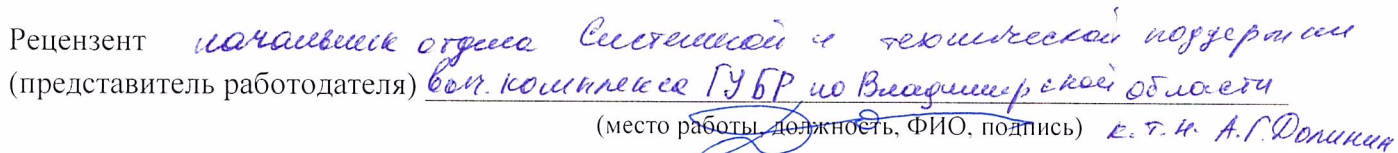 Рецензент начальник отдела Системной и технической поддержки
(представитель работодателя) выч. комплекса ГУБР по Владимирской области
(место работы, должность, ФИО, подпись) к.т.н. А.Г. Долинин